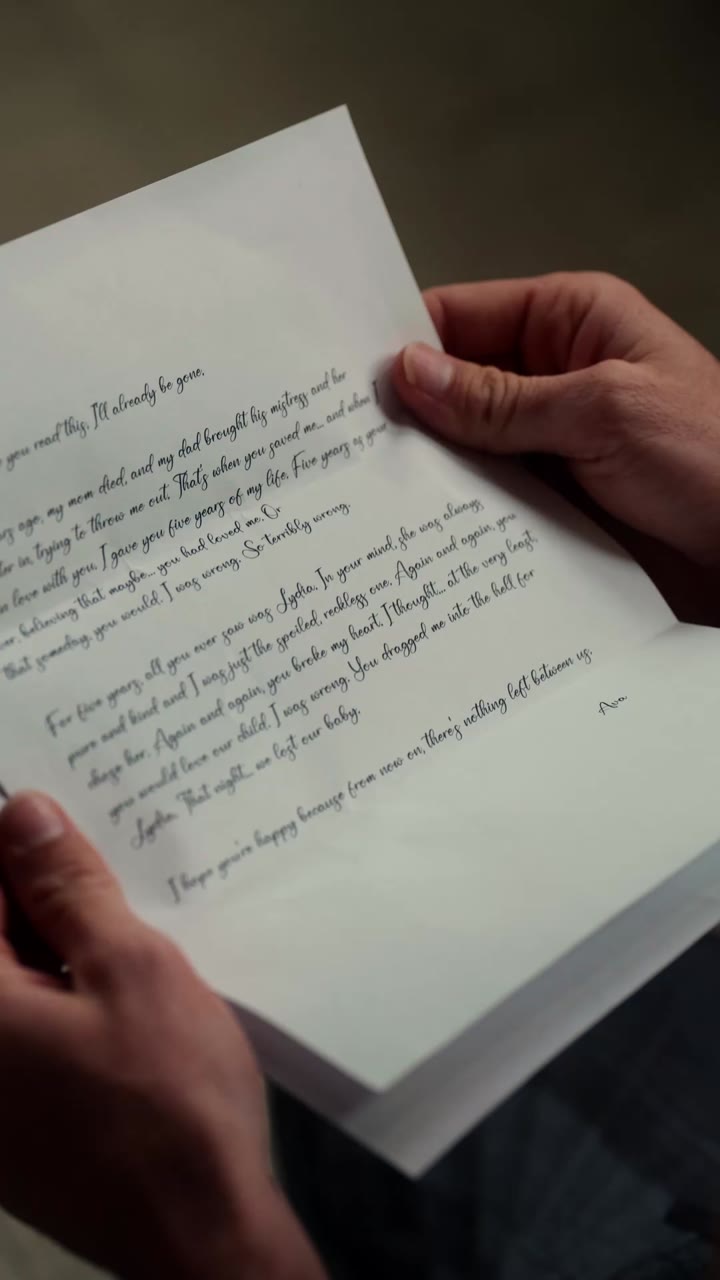 you read this, I'll already be gone.
ago, my mom died, and my dad brought his mistress and her
in, trying to throw me out. That's when you saved me... and when I
love with you. I gave you five years of my life. Five years as your
believing that maybe... you had loved me. Or
that someday, you would. I was wrong. So terribly wrong.
For five years, all you ever saw was Lydia. In your mind, she was always
pure and kind and I was just the spoiled, reckless one. Again and again, you
chose her. Again and again, you broke my heart. I thought... at the very least,
you would love our child. I was wrong. You dragged me into the hell for
Lydia. That night... we lost our baby.
I hope you're happy because from now on, there's nothing left between us.
Ava.